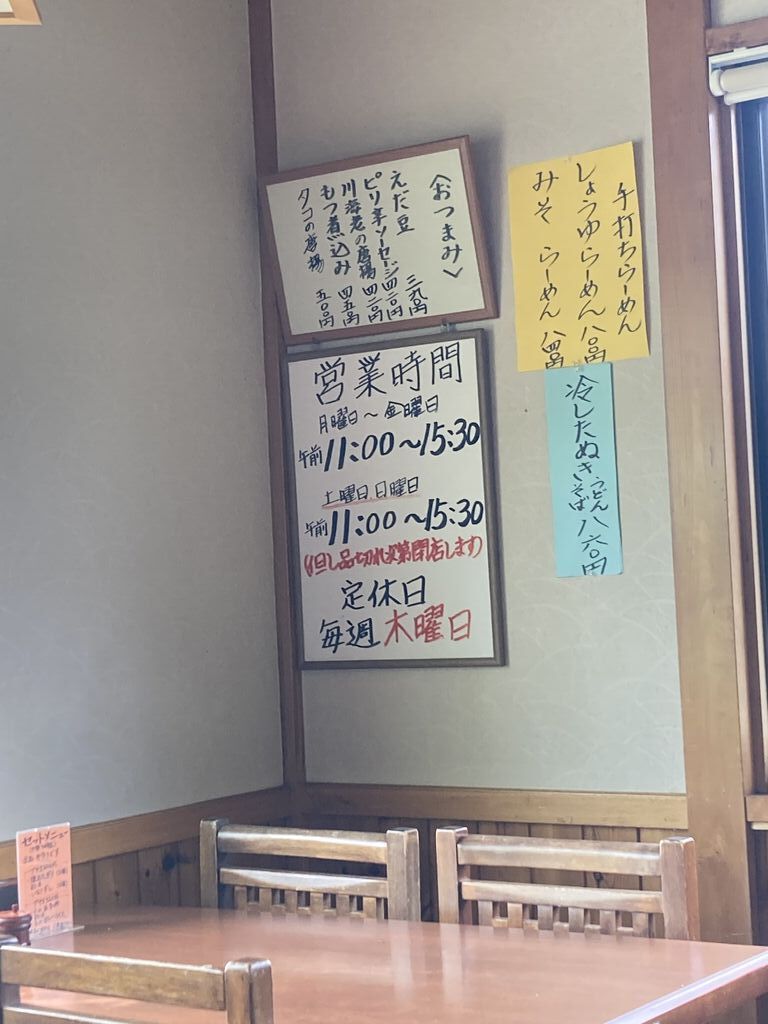 〈おつまみ〉
えだ豆 三九〇円
ピリ辛ソーセージ 四二〇円
川海老の唐揚 四二〇円
もつ煮込み 四五〇円
タコの唐揚 五〇〇円
手打ちらーめん
しょうゆらーめん 八〇〇円
みそ らーめん 八四〇円
冷したぬき うどん そば 八六〇円
営業時間
月曜日～金曜日
午前11:00～15:30
土曜日.日曜日
午前11:00～15:30
(但し品切れ次第閉店します)
定休日
毎週木曜日
セットメニュー